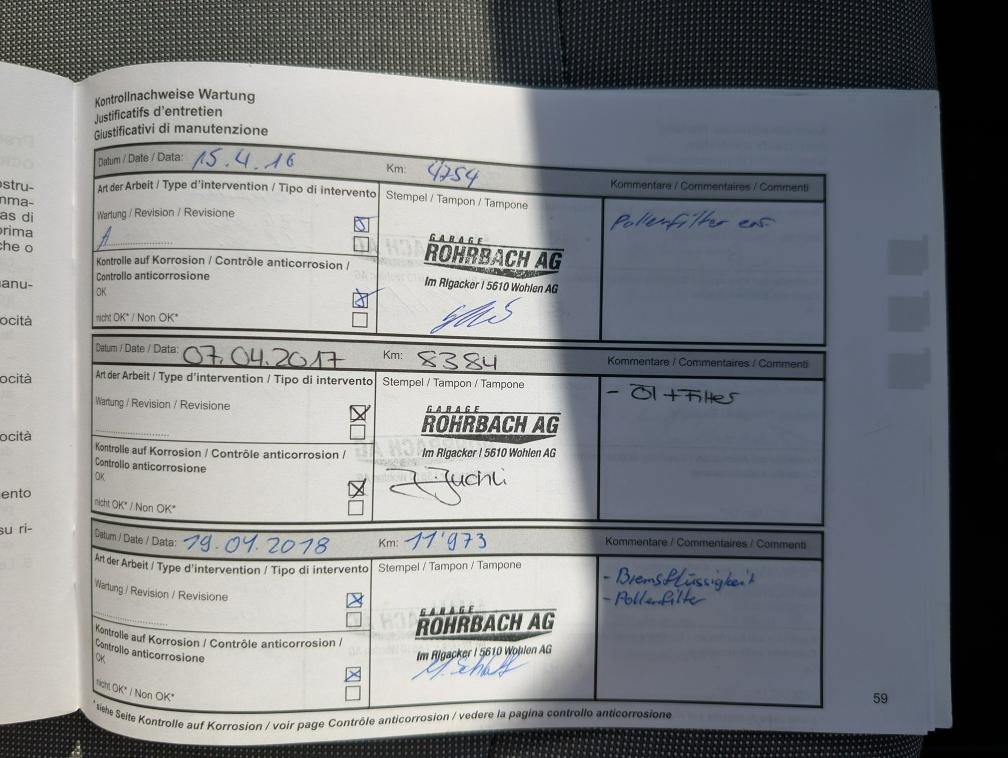 ostru-
nma-
as di
prima
che o
anu-
ocità
ocità
ocità
ento
su ri-
Kontrollnachweise Wartung
Justificatifs d'entretien
Giustificativi di manutenzione
Datum / Date / Data: 15.4.16 Km: 4754 Kommentare / Commentaires / Commenti
Art der Arbeit / Type d'intervention / Tipo di intervento
Stempel / Tampon / Tampone
Wartung / Revision / Revisione
A
Pollenfilter ers.
Kontrolle auf Korrosion / Contrôle anticorrosion /
Controllo anticorrosione
OK
nicht OK* / Non OK*
GARAGE
ROHRBACH AG
Im Rigacker I 5610 Wohlen AG
Datum / Date / Data: 07.04.2017 Km: 8384 Kommentare / Commentaires / Commenti
Art der Arbeit / Type d'intervention / Tipo di intervento
Stempel / Tampon / Tampone
Wartung / Revision / Revisione
- Öl + Filter
Kontrolle auf Korrosion / Contrôle anticorrosion /
Controllo anticorrosione
OK
nicht OK* / Non OK*
GARAGE
ROHRBACH AG
Im Rigacker I 5610 Wohlen AG
Datum / Date / Data: 19.04.2018 Km: 11'973 Kommentare / Commentaires / Commenti
Art der Arbeit / Type d'intervention / Tipo di intervento
Stempel / Tampon / Tampone
Wartung / Revision / Revisione
- Bremsflüssigkeit
- Pollenfilter
Kontrolle auf Korrosion / Contrôle anticorrosion /
Controllo anticorrosione
OK
nicht OK* / Non OK*
GARAGE
ROHRBACH AG
Im Rigacker I 5610 Wohlen AG
*siehe Seite Kontrolle auf Korrosion / voir page Contrôle anticorrosion / vedere la pagina controllo anticorrosione
59